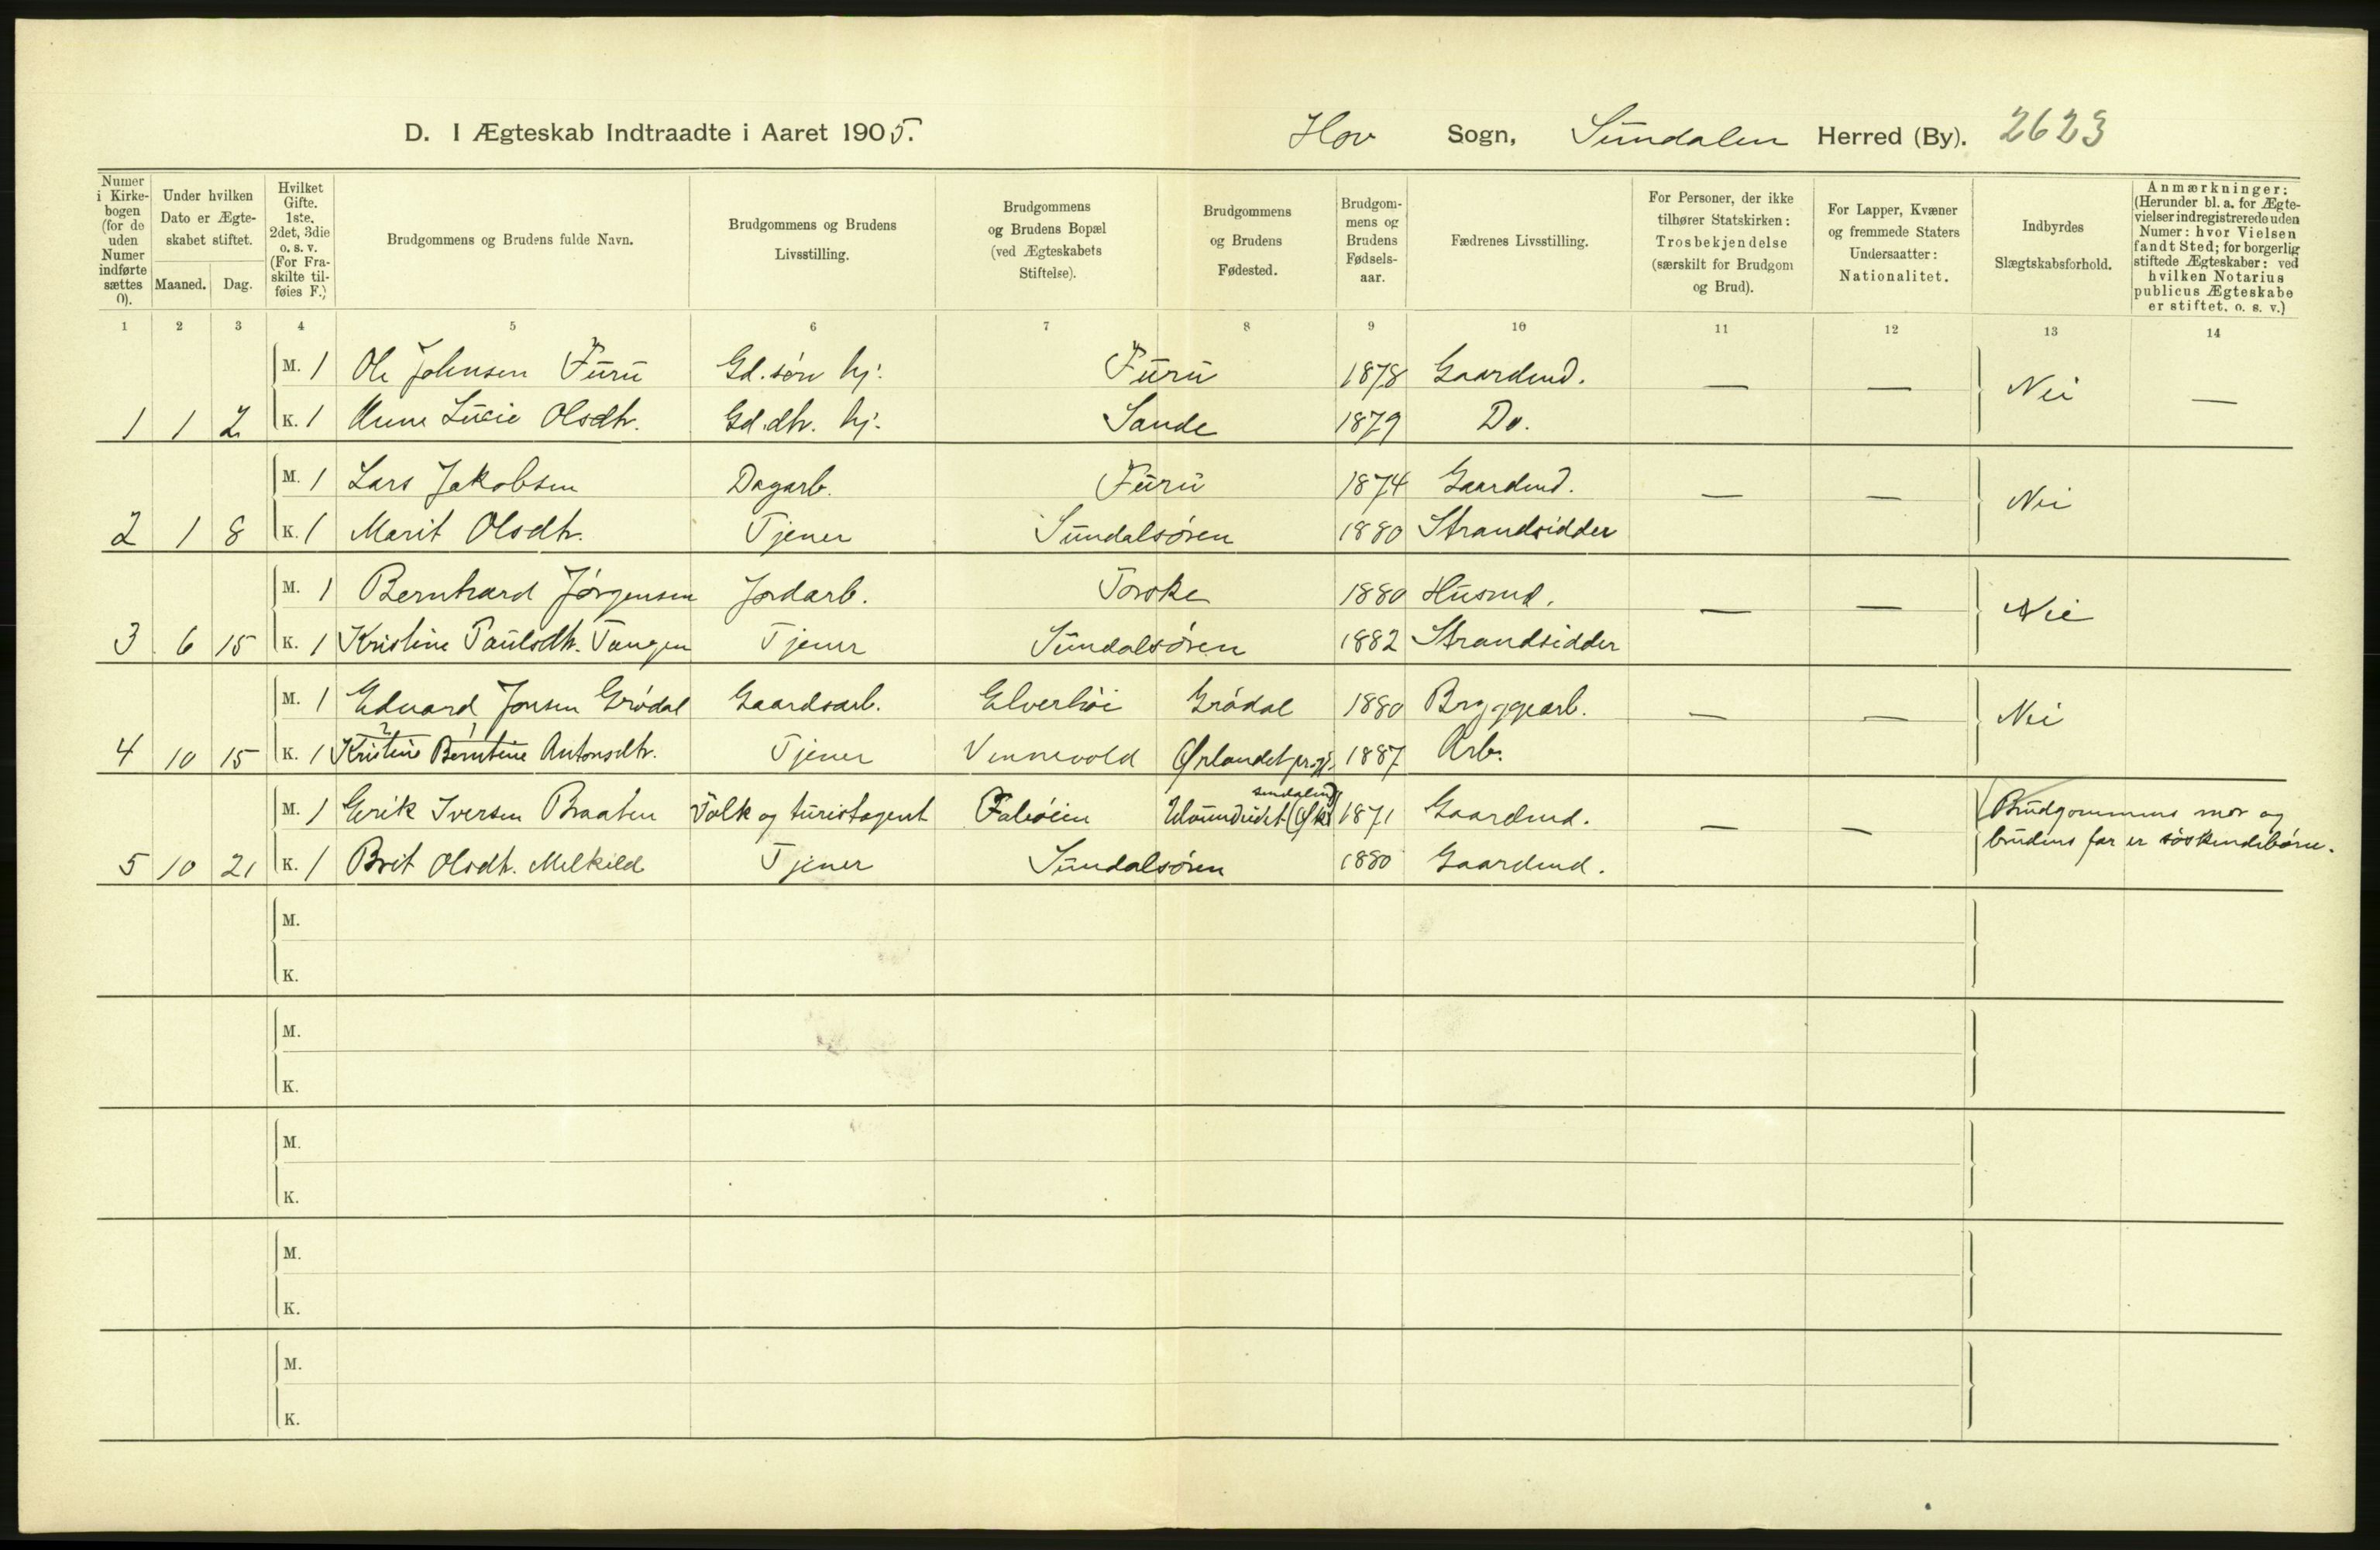 D. I Ægteskab Indtraadte i Aaret 1905. Hov Sogn, Sundalen Herred (By). 2623
Numer i Kirkebogen (for de uden Numer indførte sættes 0).
Under hvilken Dato er Ægteskabet stiftet.
Maaned. Dag.
Hvilket Gifte. 1ste, 2det, 3die o. s. v. (For Fraskilte tilføies F.)
Brudgommens og Brudens fulde Navn.
Brudgommens og Brudens Livsstilling.
Brudgommens og Brudens Bopæl (ved Ægteskabets Stiftelse).
Brudgommens og Brudens Fødested.
Brudgommens og Brudens Fødselsaar.
Fædrenes Livsstilling.
For Personer, der ikke tilhører Statskirken: Trosbekjendelse (særskilt for Brudgom og Brud).
For Lapper, Kvæner og fremmede Staters Undersaatter: Nationalitet.
Indbyrdes Slægtskabsforhold.
Anmærkninger: (Herunder bl. a. for Ægtevielser indregistrerede uden Numer: hvor Vielsen fandt Sted; for borgerlig stiftede Ægteskaber: ved hvilken Notarius publicus Ægteskabe er stiftet, o. s. v.)
1 2 3 4 5 6 7 8 9 10 11 12 13 14
M. 1 Ole Johnsen Furu Gd. søn hj. Furu 1878 Gaardmd. — — Nei —
1 1 2 K. 1 Anne Lucie Olsdtr. Gd. dtr. hj. Sande 1879 Do.
M. 1 Lars Jakobsen Dagarb. Furu 1874 Gaardmd. — — Nei
2 1 8 K. 1 Marit Olsdtr. Tjener Sundalsøren 1880 Strandsidder
M. 1 Bernhard Jørgensen Jordarb. Torske 1880 Husmd. — — Nei
3 6 15 K. 1 Kristine Paulsdtr. Tangen Tjener Sundalsøren 1882 Strandsidder
M. 1 Edvard Jonsen Grødal Gaardsarb. Elverhøi Grødal 1880 Bryggearb. — — Nei
2 1
4 10 15 K. 1 Kristine Berntine Antonsdtr. Tjener Vennevold Ørlandet prgj. 1887 Arb.
M. 1 Erik Iversen Braaten Tolk og turistagent Faleøien 1871 Gaardmd. — — Brudgommens mor og
brudens far er søskendebørn.
5 10 21 K. 1 Brit Olsdtr. Melkild Tjener Sundalsøren 1880 Gaardmd.
M.
K.
M.
K.
M.
K.
M.
K.
M.
K.